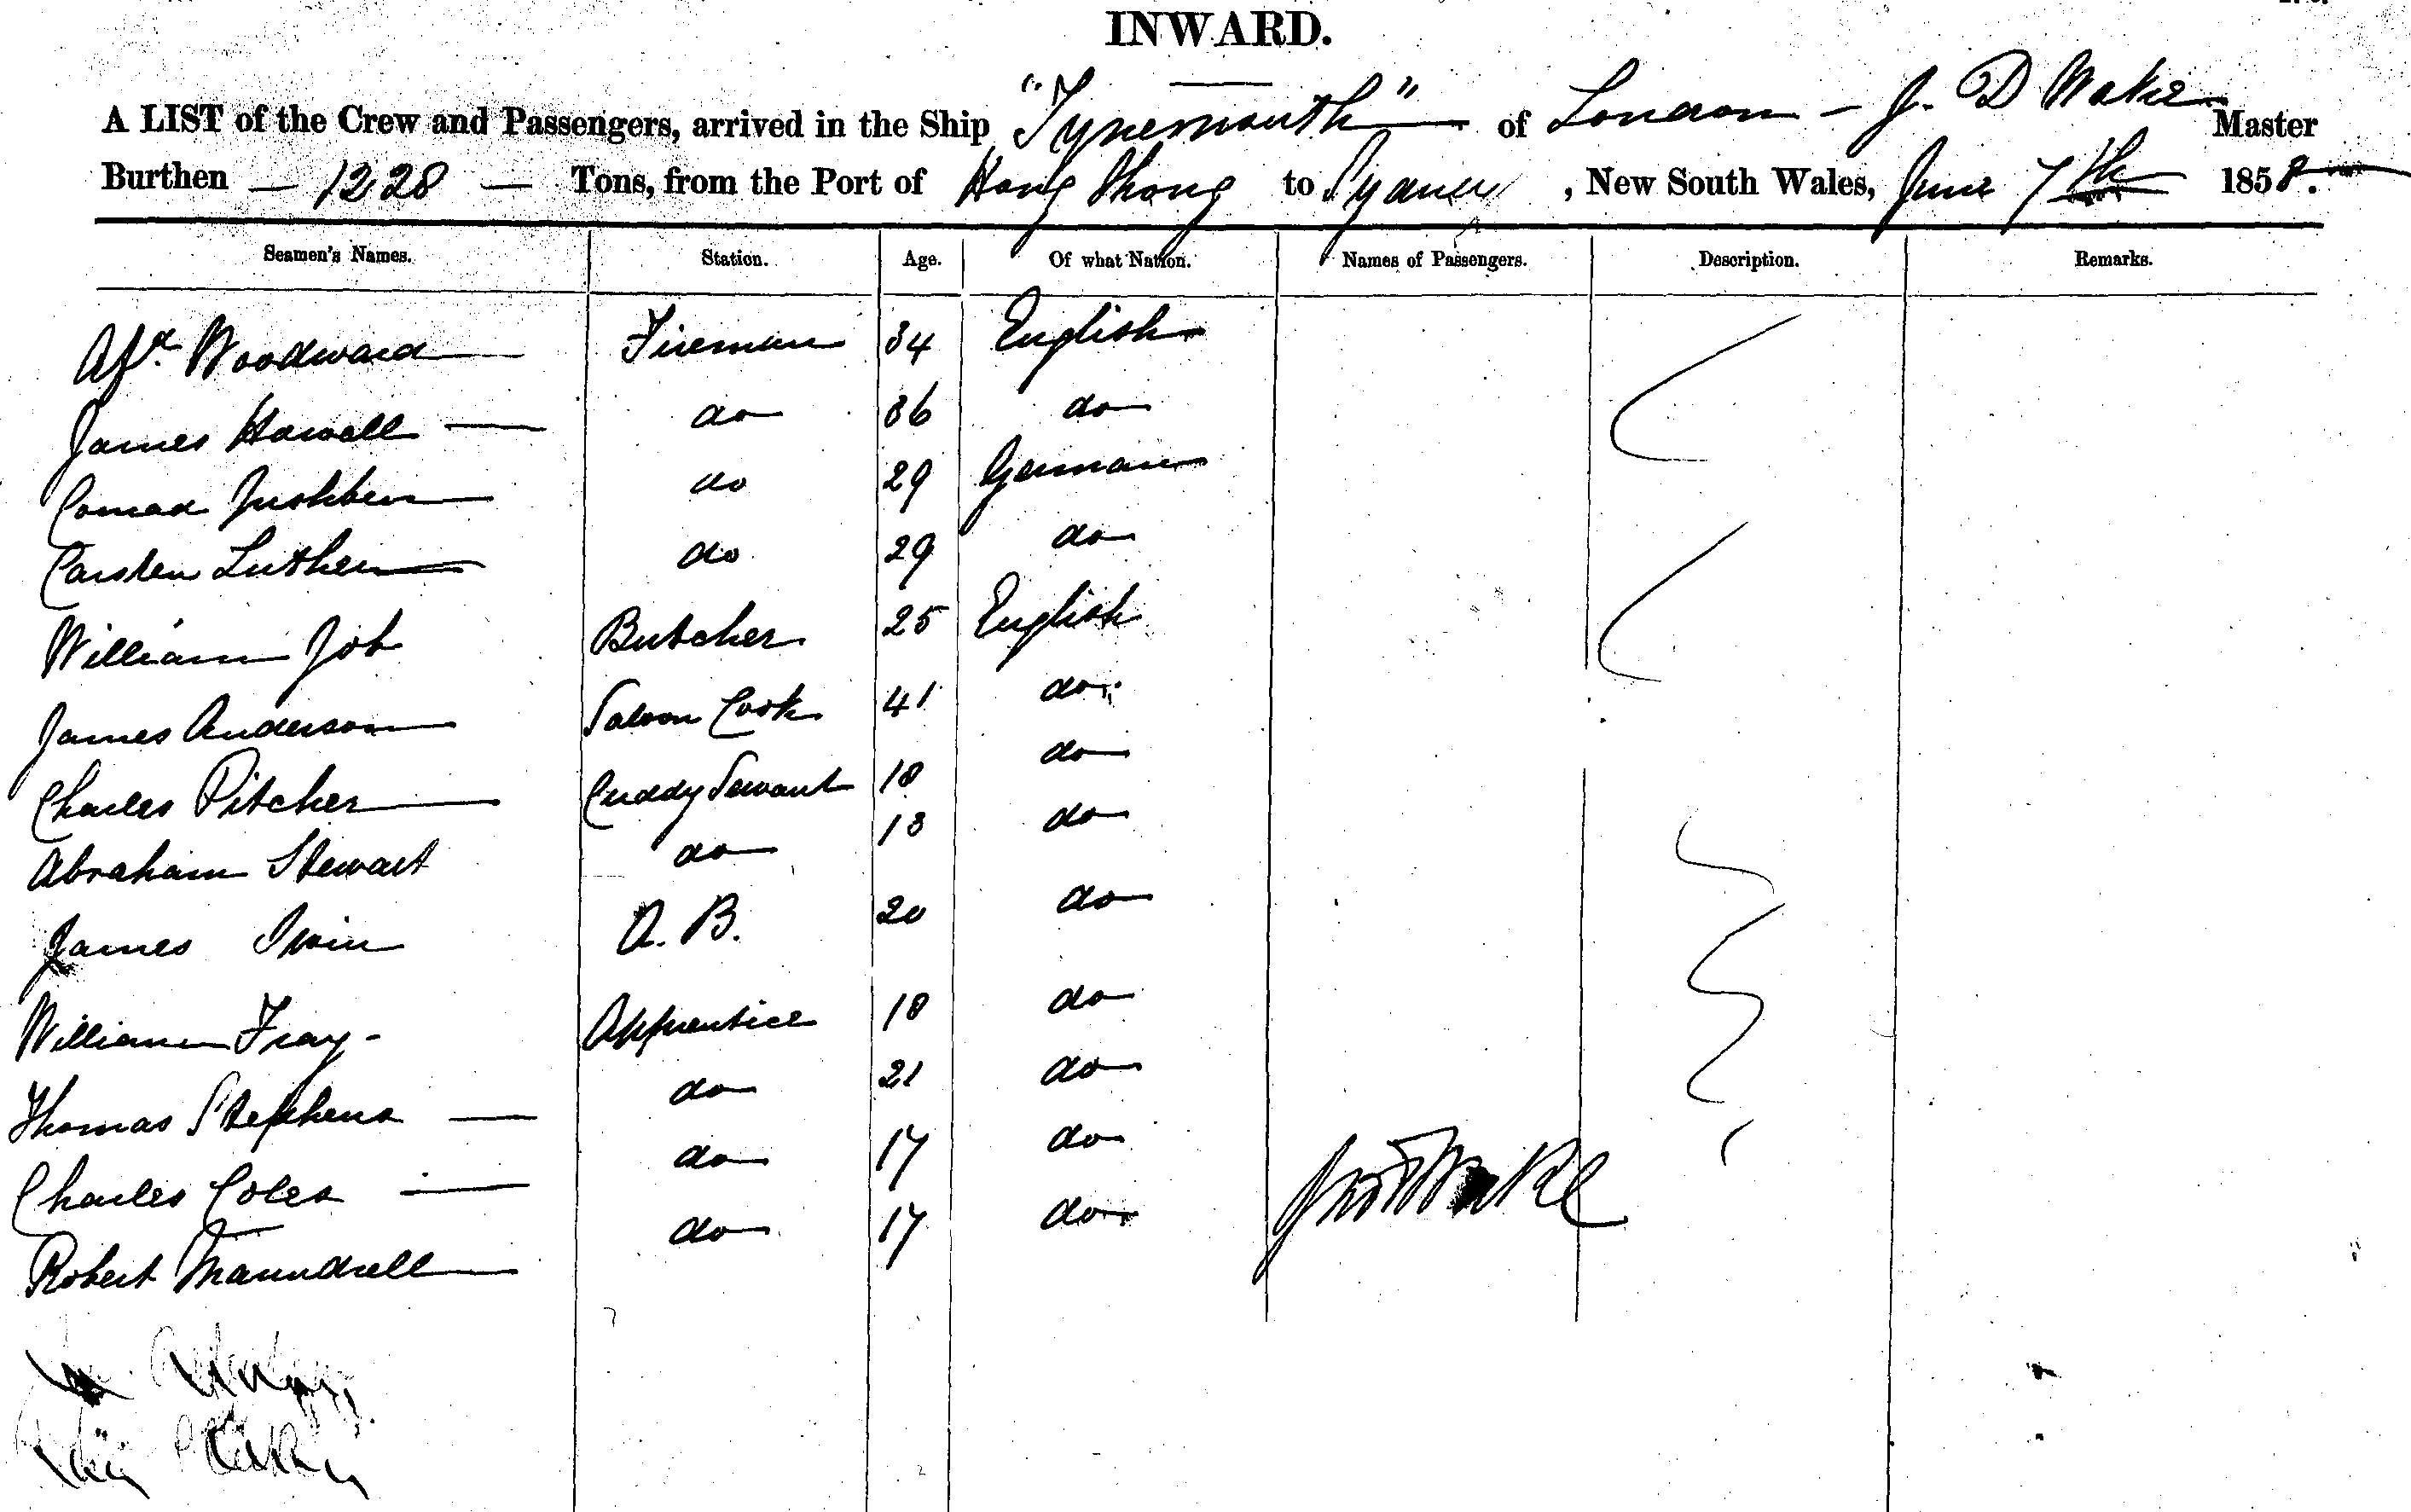 INWARD.
A LIST of the Crew and Passengers, arrived in the Ship "Tynemouth" of London - J. D Wake Master
Burthen - 1228 - Tons, from the Port of Hong Khong to Sydney, New South Wales, June 7th 1858.
Seamen's Names. Station. Age. Of what Nation. Names of Passengers. Description. Remarks.
Woodward Fireman 34 English
James Howell do 36 do
Conrad do 29 German
Carsten Luthen do 29 do
William Job Butcher 25 English
James Anderson Saloon Cook 41 do
Charles Pitcher Cuddy Servant 18 do
Abraham Stewart do 18 do
James Irvin A. B. 20 do
William Fray Apprentice 18 do
Thomas Stephens do 21 do
Charles Coles do 17 do
Robert Maundrell do 17 do
Wake